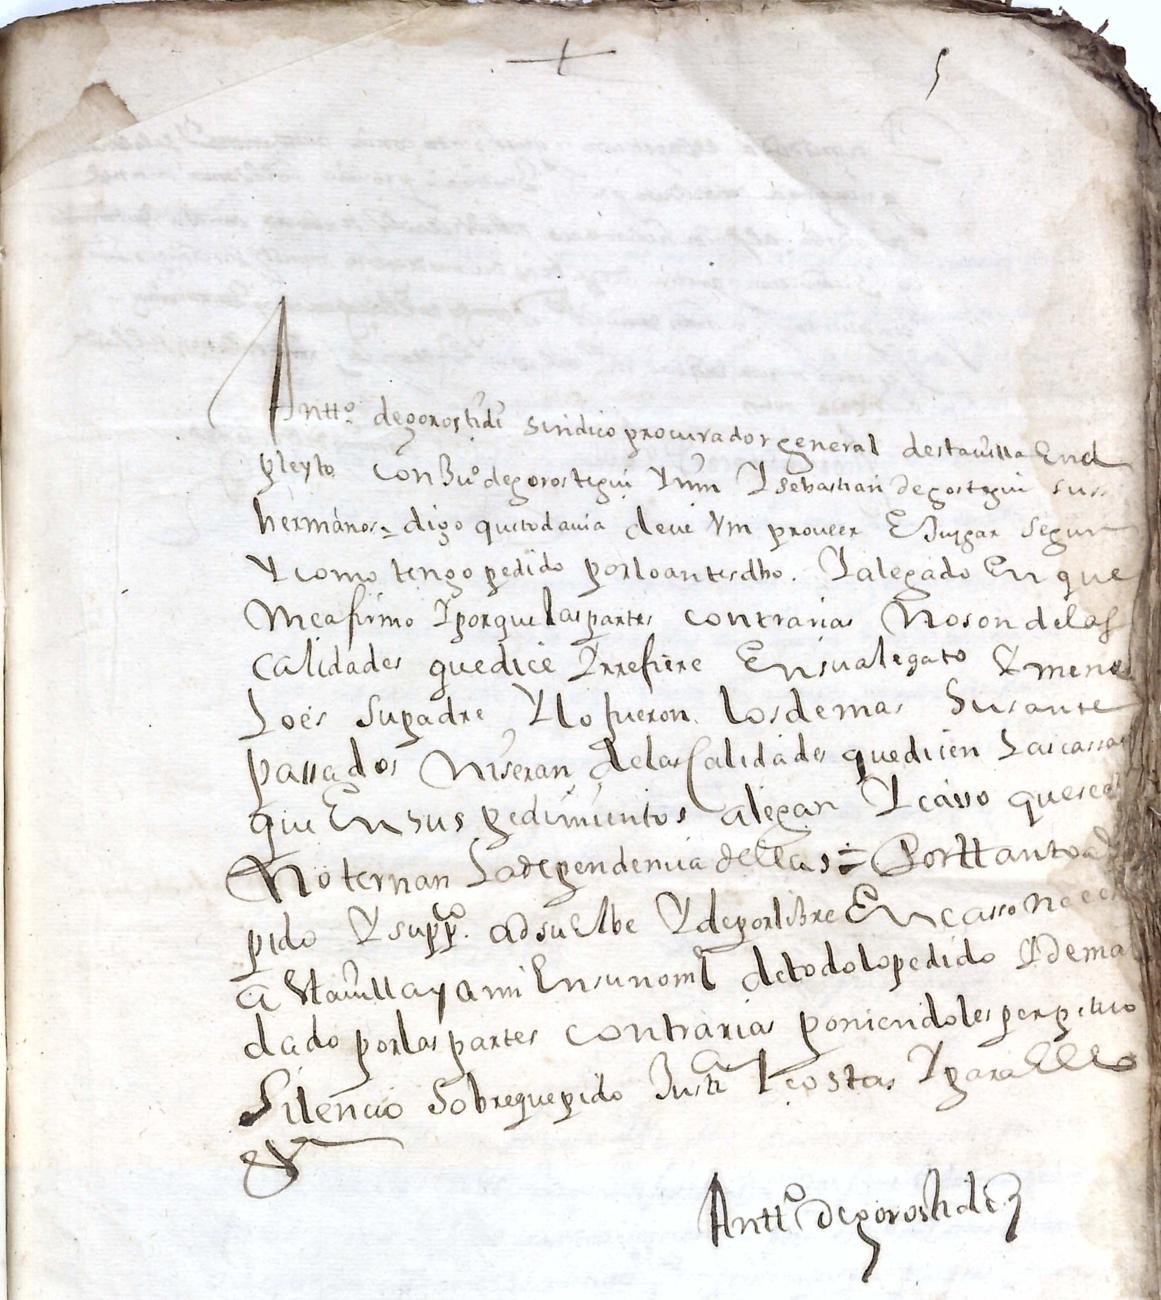 Antt.º de gorostidi sindico procurador general destavilla En el
pleyto con Ju.º de gorostegui Y Sebastian de gostegui sus
hermanos = digo que todavia deve Vm proveer E Juzgar segun
Y como tengo pedido por lo antes dho. Y alegado En que
me afirmo Y porque las partes contrarias No son de las
calidades que dice Y rrefiere En su alegato Y menos
Lo es su padre Y lo fueron los demas Sus ante
passados Ni seran de las Calidades que dicen Las cassas
que En sus pedimientos alegan Y casso que
No ternan La dependencia dellas = Por ttanto a
pido Y supp.co adsuelbe Y de por libre En casso
a Vtavilla y a mi En su nom.e de todo lo pedido Y dema
dado por las partes contrarias poniendoles perpetuo
Silencio sobre que pido Just.a Y costas Y para Ello
&
Antt.º de gorostidi